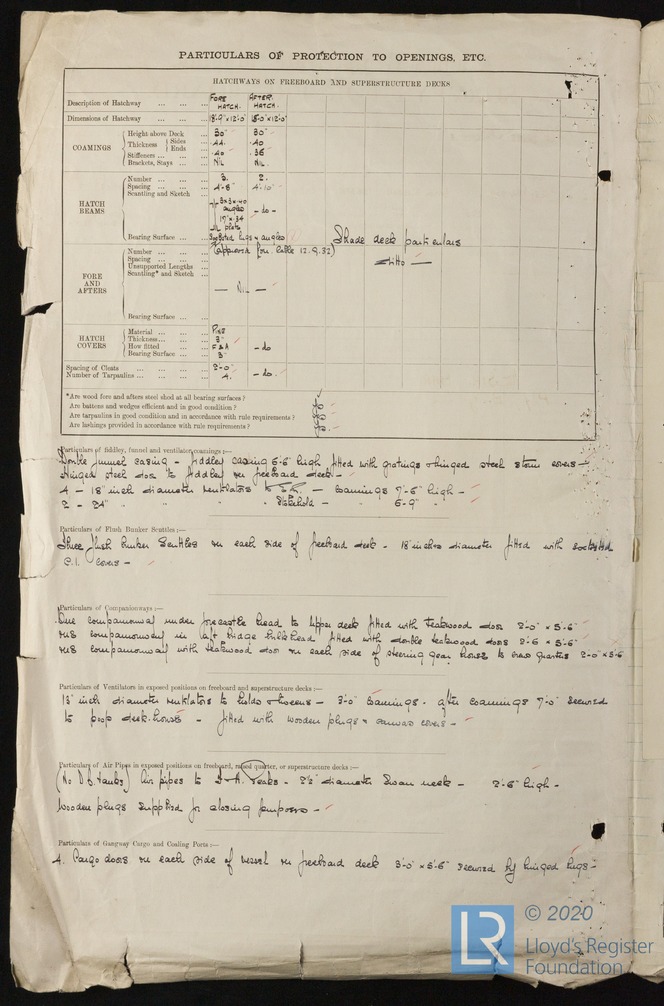 PARTICULARS OF PROTECTION TO OPENINGS, ETC.
HATCHWAYS ON FREEBOARD AND SUPERSTRUCTURE DECKS
Description of Hatchway ... ... ... FORE HATCH. AFTER HATCH.
Dimensions of Hatchway ... ... ... 18'-9" x 12'-0"
COAMINGS
Height above Deck ... 30" 30"
Thickness Sides ... .44. .40
Ends ... .40 .36
Stiffeners ... ...
Brackets, Stays ... ... NIL NIL.
HATCH BEAMS
Number ... ... ... 3. 2.
Spacing ... ... ... 4'-8" 4'-10"
Scantling and Sketch
3x3x.40 angles
17"x.34 plate
- do -
Bearing Surface ... ... lugs & angles
(Approved for cable 12.9.32)
Shade deck particulars
ditto
FORE AND AFTERS
Number ... ... ...
Spacing ... ... ...
Unsupported Lengths ...
Scantling* and Sketch ...
— NIL —
Bearing Surface ... ...
HATCH COVERS
Material ... ... ... PINE
Thickness ... ... ... 3"
How fitted ... ... F & A - do
Bearing Surface ... ... 3"
Spacing of Cleats ... ... ... ... 2'-0"
Number of Tarpaulins ... ... ... ... 4. - do.
*Are wood fore and afters steel shod at all bearing surfaces ?
Are battens and wedges efficient and in good condition ?
Are tarpaulins in good condition and in accordance with rule requirements ?
Are lashings provided in accordance with rule requirements ?
Particulars of fiddley, funnel and ventilator coamings :—
Double funnel casing - fiddley casing 6'-6" high fitted with gratings & hinged steel storm covers -
Hinged steel door to fiddley on freeboard deck -
4 - 18" inch diameter ventilators to E.R. - coamings 7'-6" high -
2 - 24" " " " Stokehold - " 6'-9" "
Particulars of Flush Bunker Scuttles :—
Three flush bunker scuttles on each side of freeboard deck - 18 inches diameter fitted with
C.I. covers -
Particulars of Companionways :—
One companionway under forecastle head to upper deck fitted with teakwood door 2'-0" x 5'-6"
One companionway in aft bridge bulkhead fitted with double teakwood doors 2'-6 x 5'-6"
One companionway with teakwood door on each side of steering gear house to crew quarters 2'-0" x 5'-6
Particulars of Ventilators in exposed positions on freeboard and superstructure decks :—
inch diameter ventilators to holds & tweens - 3'-0" coamings. after coamings 7'-0" secured
to poop deck houses - fitted with wooden plugs & canvas covers -
Particulars of Air Pipes in exposed positions on freeboard, raised quarter, or superstructure decks :—
(No D.B. tanks) Air pipes to peaks - 2½" diameter swan neck - 2'-6" high -
Wooden plugs supplied for closing purposes -
Particulars of Gangway Cargo and Coaling Ports :—
4. Cargo doors on each side of vessel on freeboard deck 3'-0" x 5'-6" secured by hinged lugs -
LR
© 2020
Lloyd's Register
Foundation